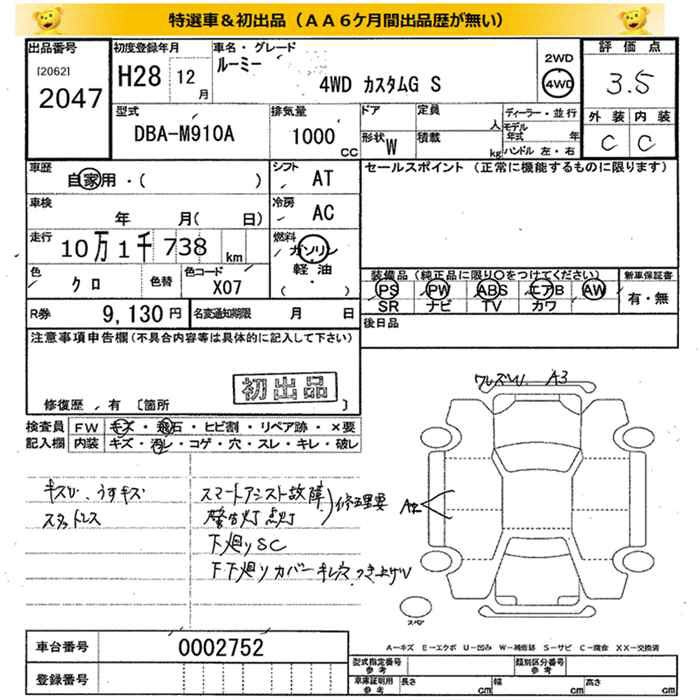 特選車＆初出品（ＡＡ６ケ月間出品歴が無い）
出品番号 初度登録年月 車名・グレード 評価点
[2062] 2047 H28 12月 ルーミー 4WD カスタムG S 2WD 4WD 3.5
型式 排気量 ドア 定員 ディーラー・並行 外装 内装
DBA-M910A 1000 CC 人 モデル年式 年 C C
形状 W 積載 kg ハンドル 左・右
車歴 自家用・( ) シフト AT セールスポイント（正常に機能するものに限ります）
車検 年 月( 日) 冷房 AC
走行 10万1千738 km 燃料 ガソリン 軽油 ・( )
装備品（純正品に限り○をつけてください） 新車保証書
色 クロ 色替 色コード X07 PS PW ABS エアB AW 有・無
SR ナビ TV カワ
R券 9,130円 名変通知期限 月 日 後日品
注意事項申告欄（不具合内容等は具体的に記入して下さい）
初出品
修復歴 有 〔箇所 〕
検査員 FW キズ・飛石・ヒビ割・リペア跡・×要
記入欄 内装 キズ・汚レ・コゲ・穴・スレ・キレ・破レ
A3
キズ、うすキズ スマートアシスト故障
スタッドレス 警告灯 点灯 修理要
下廻りSC
下下廻りカバーキレ つき上げ
スペア
車台番号 0002752
A－キズ E－エクボ U－凹み W－補修跡 S－サビ C－腐食 XX－交換済
登録番号 型式指定番号 参考 類別区分番号 参考
車庫証明用 参考 長さ cm 幅 cm 高さ cm